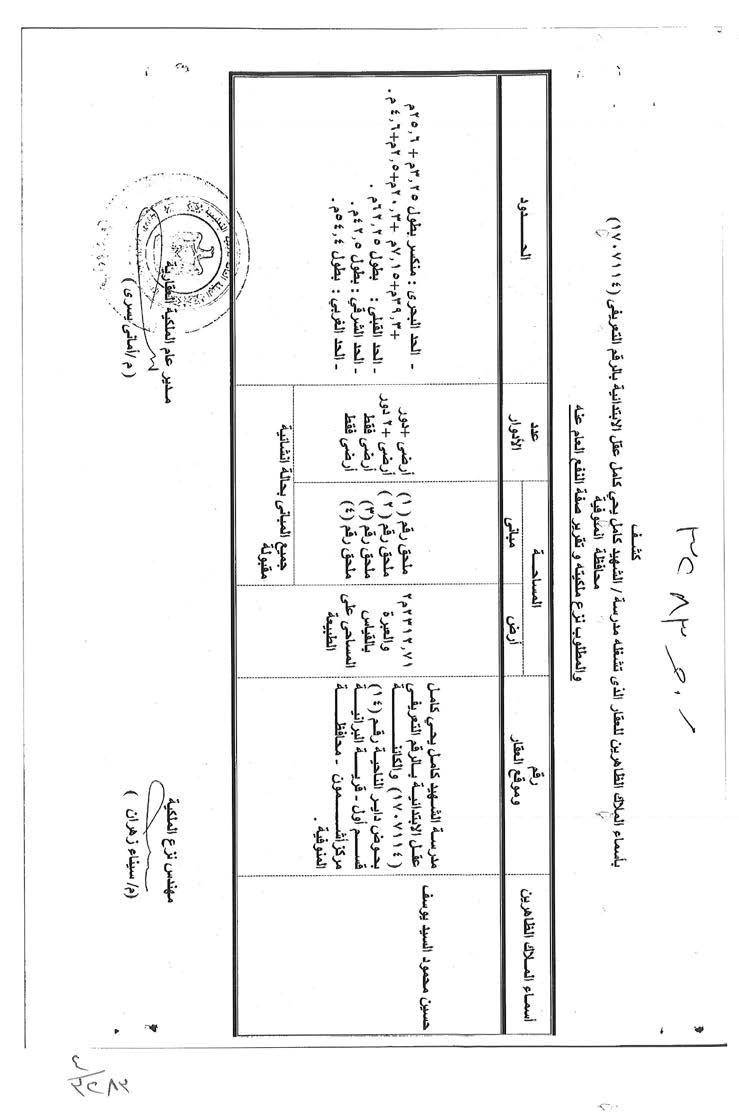 كشف
بأسماء الملاك الظاهرين للعقار الذى تشغله مدرسة / الشهيد كامل يحي كامل عقل الابتدائية بالرقم التعريفى (١٧٠٧١١٤)
محافظة المنوفية
والمطلوب نزع ملكيته و تقرير صفة النفع العام عنه
أسماء الملاك الظاهرين
رقم
وموقع العقار
المساحة
أرض
مبانى
عدد
الأدوار
الحدود
حسين محمود السيد يوسف
مدرسة الشهيد كامل يحي كامل
عقل الابتدائية بالرقم التعريفي
(١٧٠٧١١٤) والكائنة
بحوض داير الناحية رقم (١٤)
قسم أول - قرية البرانية -
مركز أشمون - محافظة
المنوفية .
٢٣١٢,٧١م٢
والعبرة
بالقياس
المساحى على
الطبيعة
ملحق رقم (١)
ملحق رقم (٢)
ملحق رقم (٣)
ملحق رقم (٤)
أرضى +دور
أرضى +٢ دور
أرضى فقط
أرضى فقط
جميع المبانى بحالة انشائية
مقبولة
- الحد البحرى : منكسر بطول ٣,٢٥م + ٢٥,٦م
+٣٩,٣م+٧,١٥م +٢٠,٣م+٢,٥م+٤,٦م .
- الحد القبلى : بطول ٦٢,٢٥م .
- الحد الشرقي : بطول ٤٢,٥م .
- الحد الغربي : بطول ٥٤,٤م .
مهندس نزع الملكية
(م/ سيناء زهران )
مدير عام الملكية العقارية
( م/أمانى يسرى )